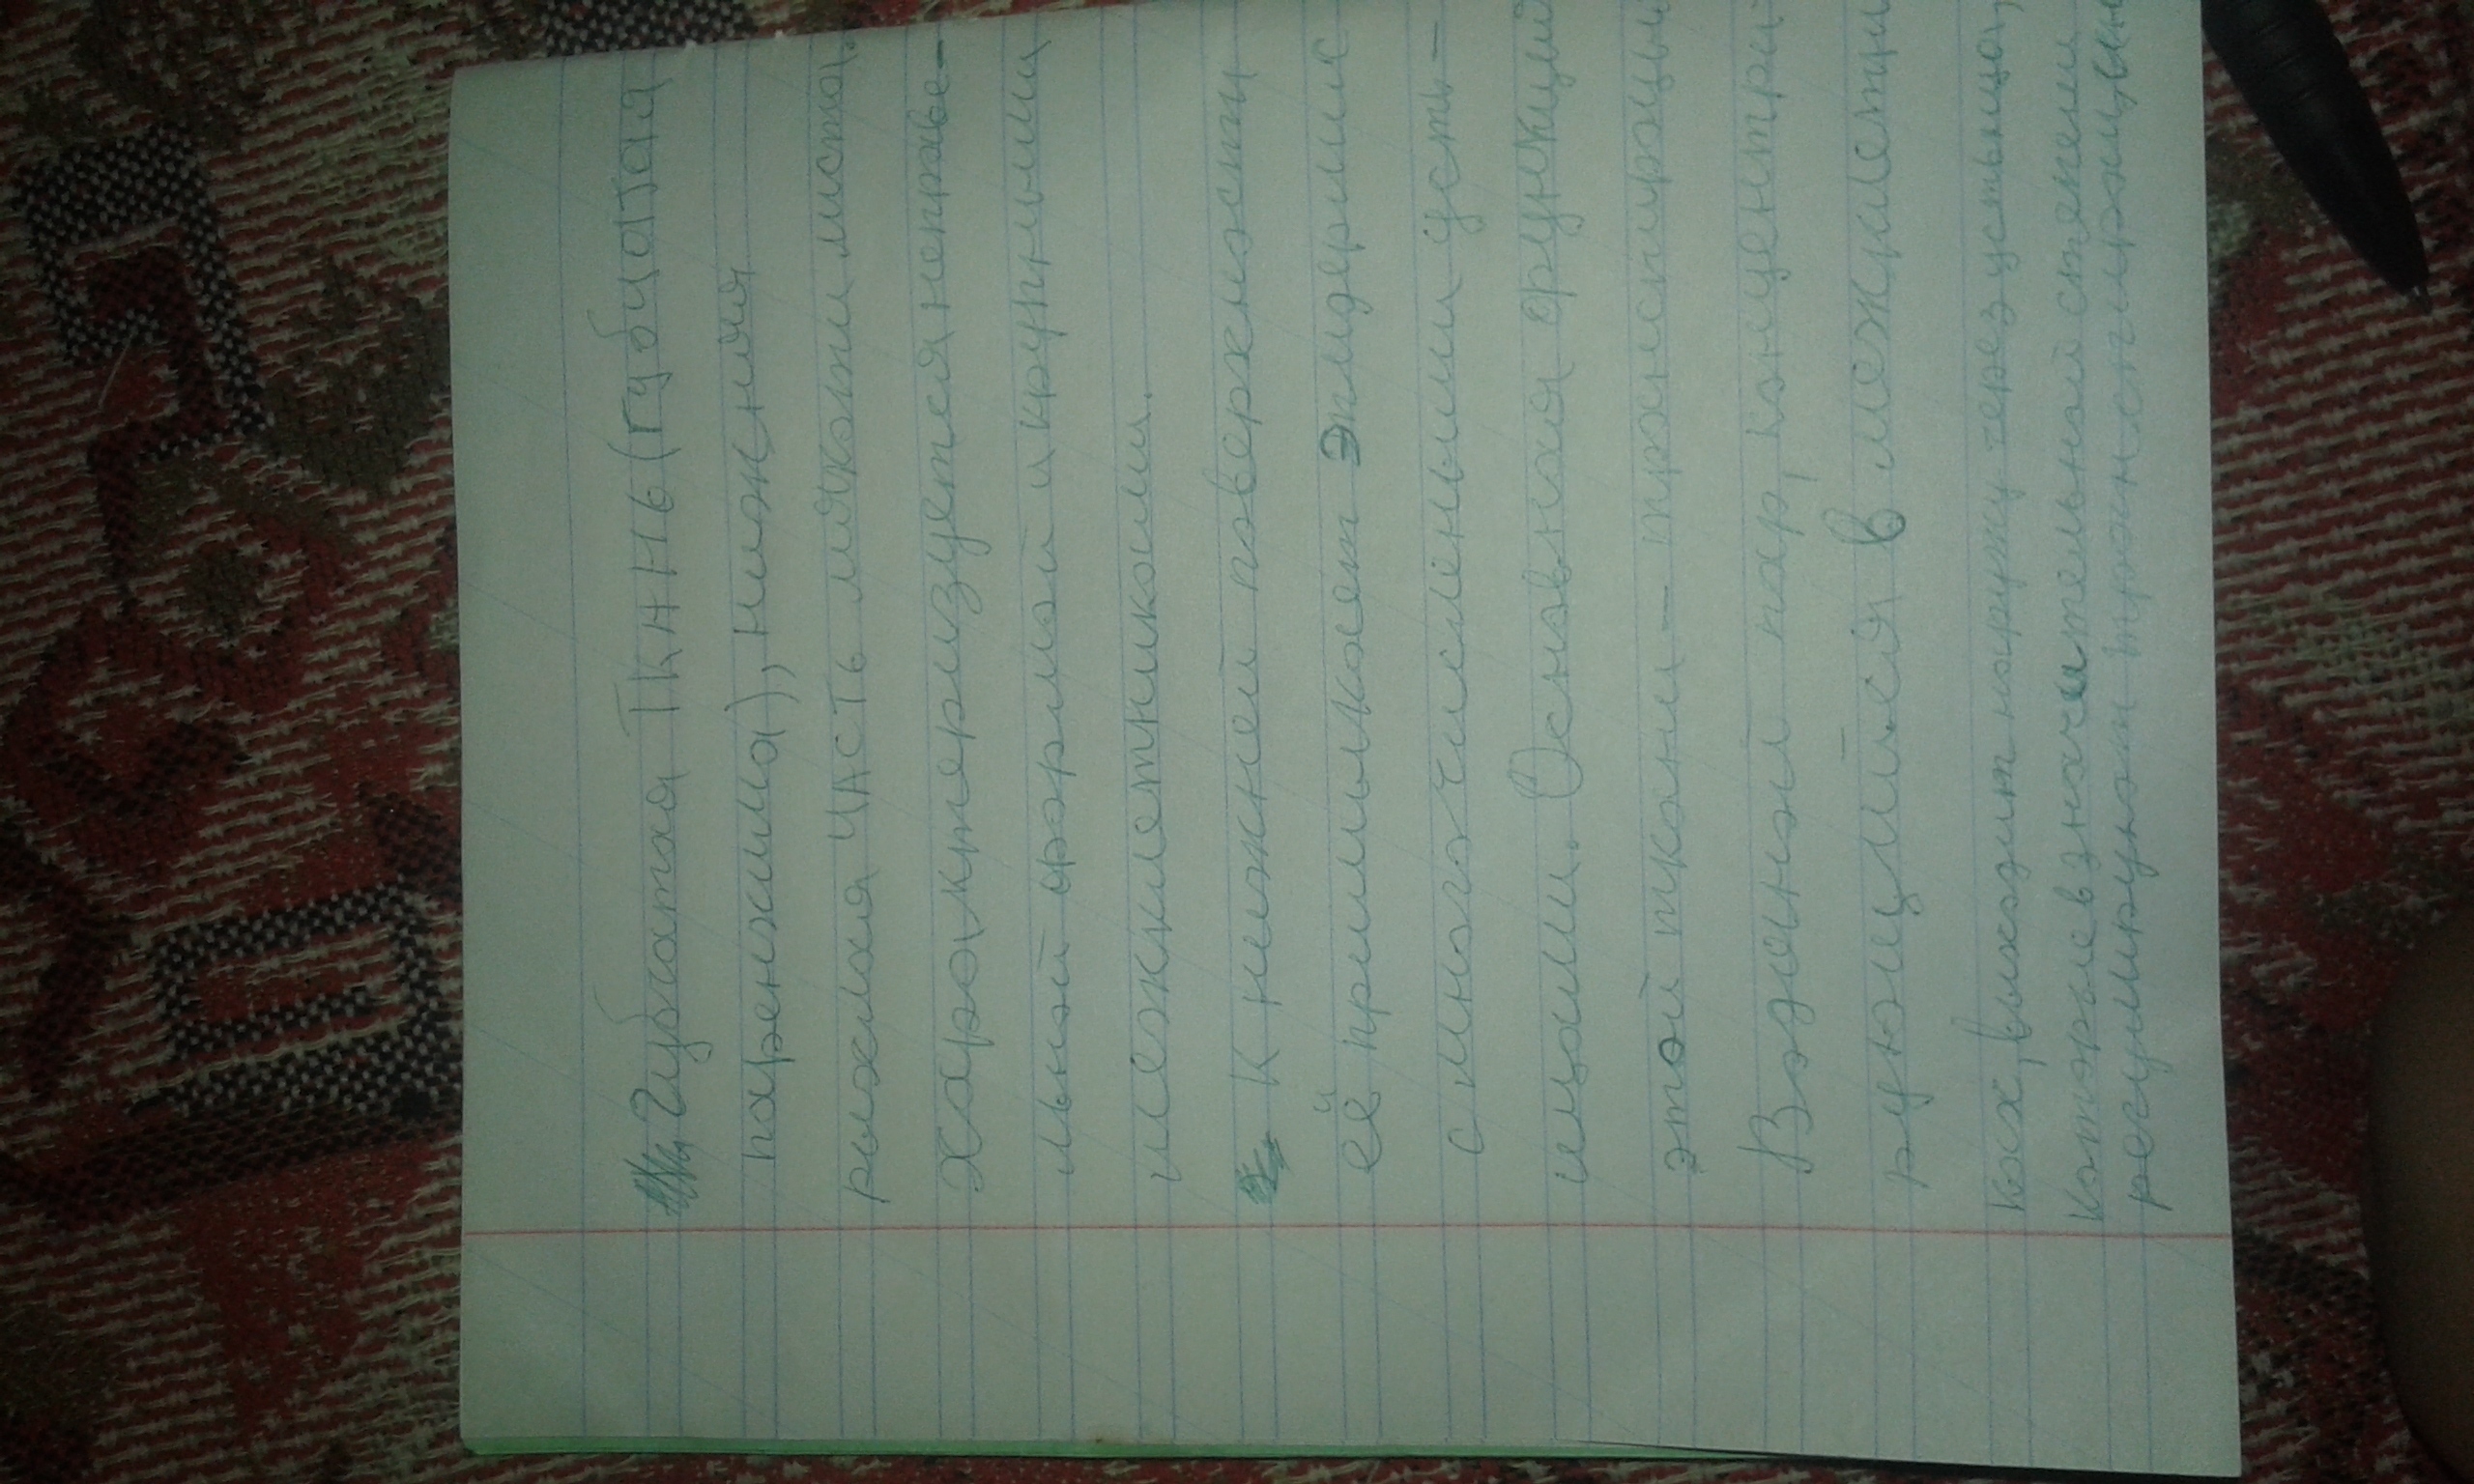 Губчатая ткань (губчатая
паренхима), нижняя
рыхлая часть мякоти листа.
Характеризуется неправе-
льной формой и крупными
межклетниками.
К нижней поверхности
её примыкает эпидермис
с многочисленными усть-
ицами. Основная функция
этой ткани - транспирация
Водяной пар, концентри-
рующийся в межклетни-
ках, выходит наружу через устьица,
которые в значительной степени
регулируют транспирацию